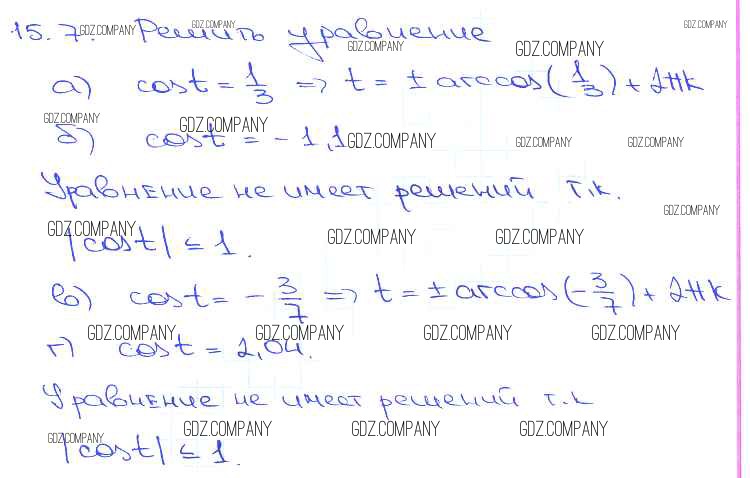 15.7. Решить уравнение
а) cos t = 1/3 => t = ± arccos(1/3) + 2πk
б) cos t = -1,1
Уравнение не имеет решений т.к.
|cos t| ≤ 1.
в) cos t = - 3/7 => t = ± arccos(-3/7) + 2πk
г) cos t = 2,04.
Уравнение не имеет решений т.к
|cos t| ≤ 1.
GDZ.COMPANY GDZ.COMPANY GDZ.COMPANY
GDZ.COMPANY GDZ.COMPANY
GDZ.COMPANY GDZ.COMPANY
GDZ.COMPANY GDZ.COMPANY GDZ.COMPANY
GDZ.COMPANY
GDZ.COMPANY GDZ.COMPANY GDZ.COMPANY
GDZ.COMPANY GDZ.COMPANY GDZ.COMPANY GDZ.COMPANY
GDZ.COMPANY GDZ.COMPANY GDZ.COMPANY GDZ.COMPANY